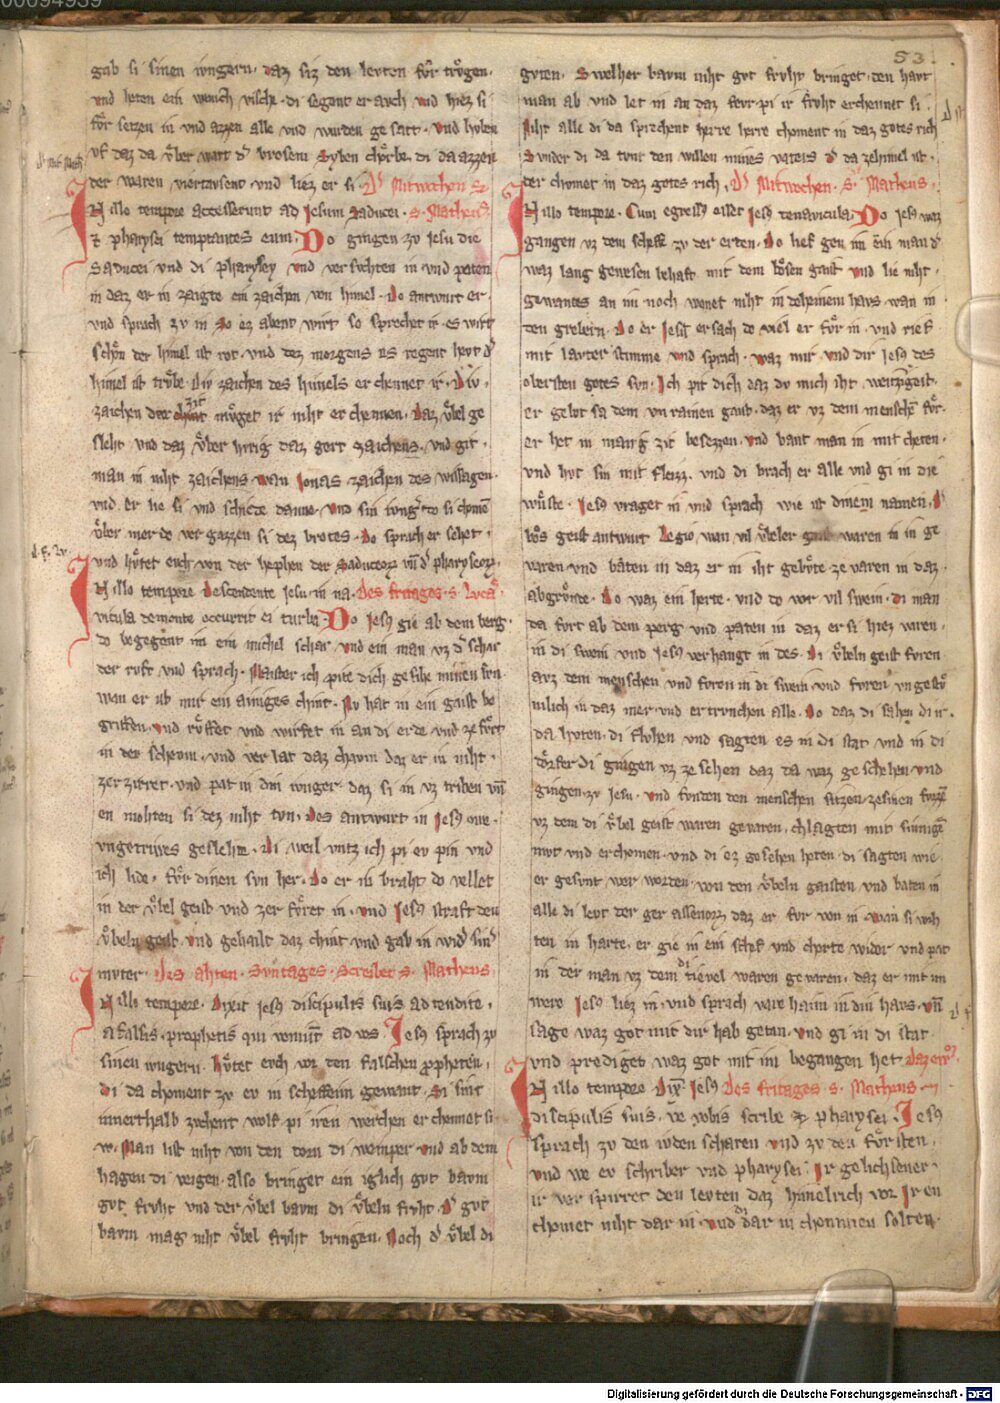 53
gab si sinen iungern. daz siz den levten fůr trůgen.
vnd heten ein wench vische. di segent er avch vnd hiez si
fůr setzen in vnd azzen alle vnd wurden gesatt. Vnd hvben
vf daz da vͤber wart d' brosem Syben chŏrbe. di da azzen
der waren viertavsent. vnd liez er si. D' Mitwochen S
IN illo tempore accesserunt ad Jesum Saducei. s. Matheus
et pharysei temptantes eum. Do giengen zv Jesu die
Saducei vnd di pharysey vnd versvchten in vnd paten
in daz er in zaigte ein zaichen von himel. Do antwurt er
vnd sprach zv in So ez abent wirt so sprechet ir. es wirt
schŏn der himel ist rot. vnd dez morgens es regent hevt d'
himel ist trůbe. Div zaichen des himels erchennet ir. Div
zaichen der zit mvget ir niht erchennen. Daz vbel ge
sleht vnd daz vber hvrig daz gert zaichens. vnd git
man in niht zaichens wan Jonas zaichen des wissagen.
vnd er lie si vnd schiede danne. vnd sin iung'er do si chomen
vber mer do vergazzen si dez brotes. Do sprach er sehet
vnd hůtet euch von der hephen der Saduceorum vnd d' pharyseorum.
IN illo tempore descendente Jesu in na. des fritages. s. Lucas
vicula demonte occurrit ei turba. Do Jesus gie ab dem berg.
do begegent im ein michel schar vnd ein man vz d' schar
der rvft vnd sprach. Maister ich pite dich gesihe minen svn
wan er ist mir ein ainiges chint. Nv hat in ein gaist be
griffen. vnd rvͤffet vnd wirfet in an di erde vnd zefůrt
in der schavm. vnd verlat daz chavm daz er in niht
zerzirret. vnd pat in din iunger daz si in vz triben vnd
en mohten si dez niht tvn. Des antwurt in Jesus owe
vngetrives geslehte. Di weil vntz ich pi ev pin vnd
ich lide. fůr dinen svn her. Do er in braht do vellet
in der vbel geist vnd zerfůret in. vnd Jesus straft den
vbeln geist. vnd gehailt daz chint vnd gab in wid' sin'
mvter. Des ahten Svntages. Scribet s. Matheus
IN illo tempore. Dixit Jesus discipulis suis adtendite.
a falsis. prophetis qui veniunt ad vos. Jesus sprach zv
sinen iungern. hůtet evch vor den falschen propheten.
Di da choment zv ev in scheffeinn gewant. Si sint
innerthalb zvchent wolf. pi iren werchen erchennet si
ir. Man list niht von den dorn di weinper vnd ab dem
hagen di veigen. also bringet ein iglich gvt bavm
gvt frvht vnd der vbel bavm di vbeln frvht. D' gvt
bavm mag niht vbel frvht bringen. Noch d' vbel di
gvten. Swelher bavm niht gvt frvht bringet. den havt
man ab vnd leit in an daz fevr. pi ir frvht erchennet si.
Niht alle di da sprechent herre herre choment in daz gotes rich
Svnder di da tvnt den willen mines vaters d' da zehimel ist.
der chvmet in daz gotes rich. D' Mitwochen. S. Matheus.
IN illo tempore. Cum egressus esset Jesus denavicula. Do Jesus waz
gangen vz dem schef zv der erten. Do lief gen im ein man d'
waz lang gewesen behaft mit dem bŏsen gaist vnd lie niht
gewantes an im noch wonet niht in deheinem havs wan in
den grebern. Do er Jesus ersach do viel er fůr in. vnd rief
mit lavter stimme vnd sprach. waz mir vnd dir Jesus des
obersten gotes svn. Ich pit dich daz dv mich iht weitzgest.
er gebot sa dem vnrainen gaist. daz er vz dem menschen fůr.
er het in manig zit besezzen. vnd bant man in mit cheten.
vnd hvt sin mit fleizz. vnd di brach er alle vnd gi in die
wůste. Jesus vraget in vnd sprach wie ist dinem namen. D'
bŏs geist antwurt Legio. wan vil vbeler gaist waren in in ge
varen. vnd bâten in daz er in iht gebŭte ze varen in daz
abgrŭnde. Do waz ein herte. vnd do vor vil swein. Di man
da fort ab dem perg vnd paten in daz er si hiez varen
in di swein vnd Jesus verhangt in des. Di vbeln geist fvren
avz dem menschen vnd fvren in di swein. vnd fvren vngestv
milich in daz mer. vnd ertrvnchen alle. Do daz di sahen di ir.
da hvten. di flvhen vnd sagten es in di stat vnd in di
dŏrfer Di gingen vz ze sehen daz da waz geschehen. vnd
gingen zv Jesu. vnd fvnden den menschen sitzen. zesinen fvzzen
vz dem di vbel geist waren gevaren. chlagten mit sinnigem
mvt vnd erchomen. vnd di ez gesehen heten. di sagten wie
er gesvnt wer worden. von den vbeln gaisten vnd baten in
alle di levt der gerassenorum daz er fvr von in. wan si vorh
ten in harte. er gie in ein schef vnd cherte wider vnd pat
in der man vz dem di tievel waren gevaren. daz er mit im
were Jesus liez in. vnd sprach vare haim in din havs. vnd
sage waz got mit dir hab getan. vnd gi in di stat
vnd prediget waz got mit im begangen het. daz ew'.
IN illo tempore Dixit Jesus des fritages. s. Matheus.
discipulis suis. ve vobis scribe et pharysei. Jesus
sprach zv den ivden scharen vnd zv den fůrsten.
vnd we ev schriber vnd pharysei. Ir gelichsener
ir verspirret den levten daz himelrich vor. Ir en
chomet niht dar in. vnd di dar in chommen solten.
Digitalisierung gefördert durch die Deutsche Forschungsgemeinschaft - DFG